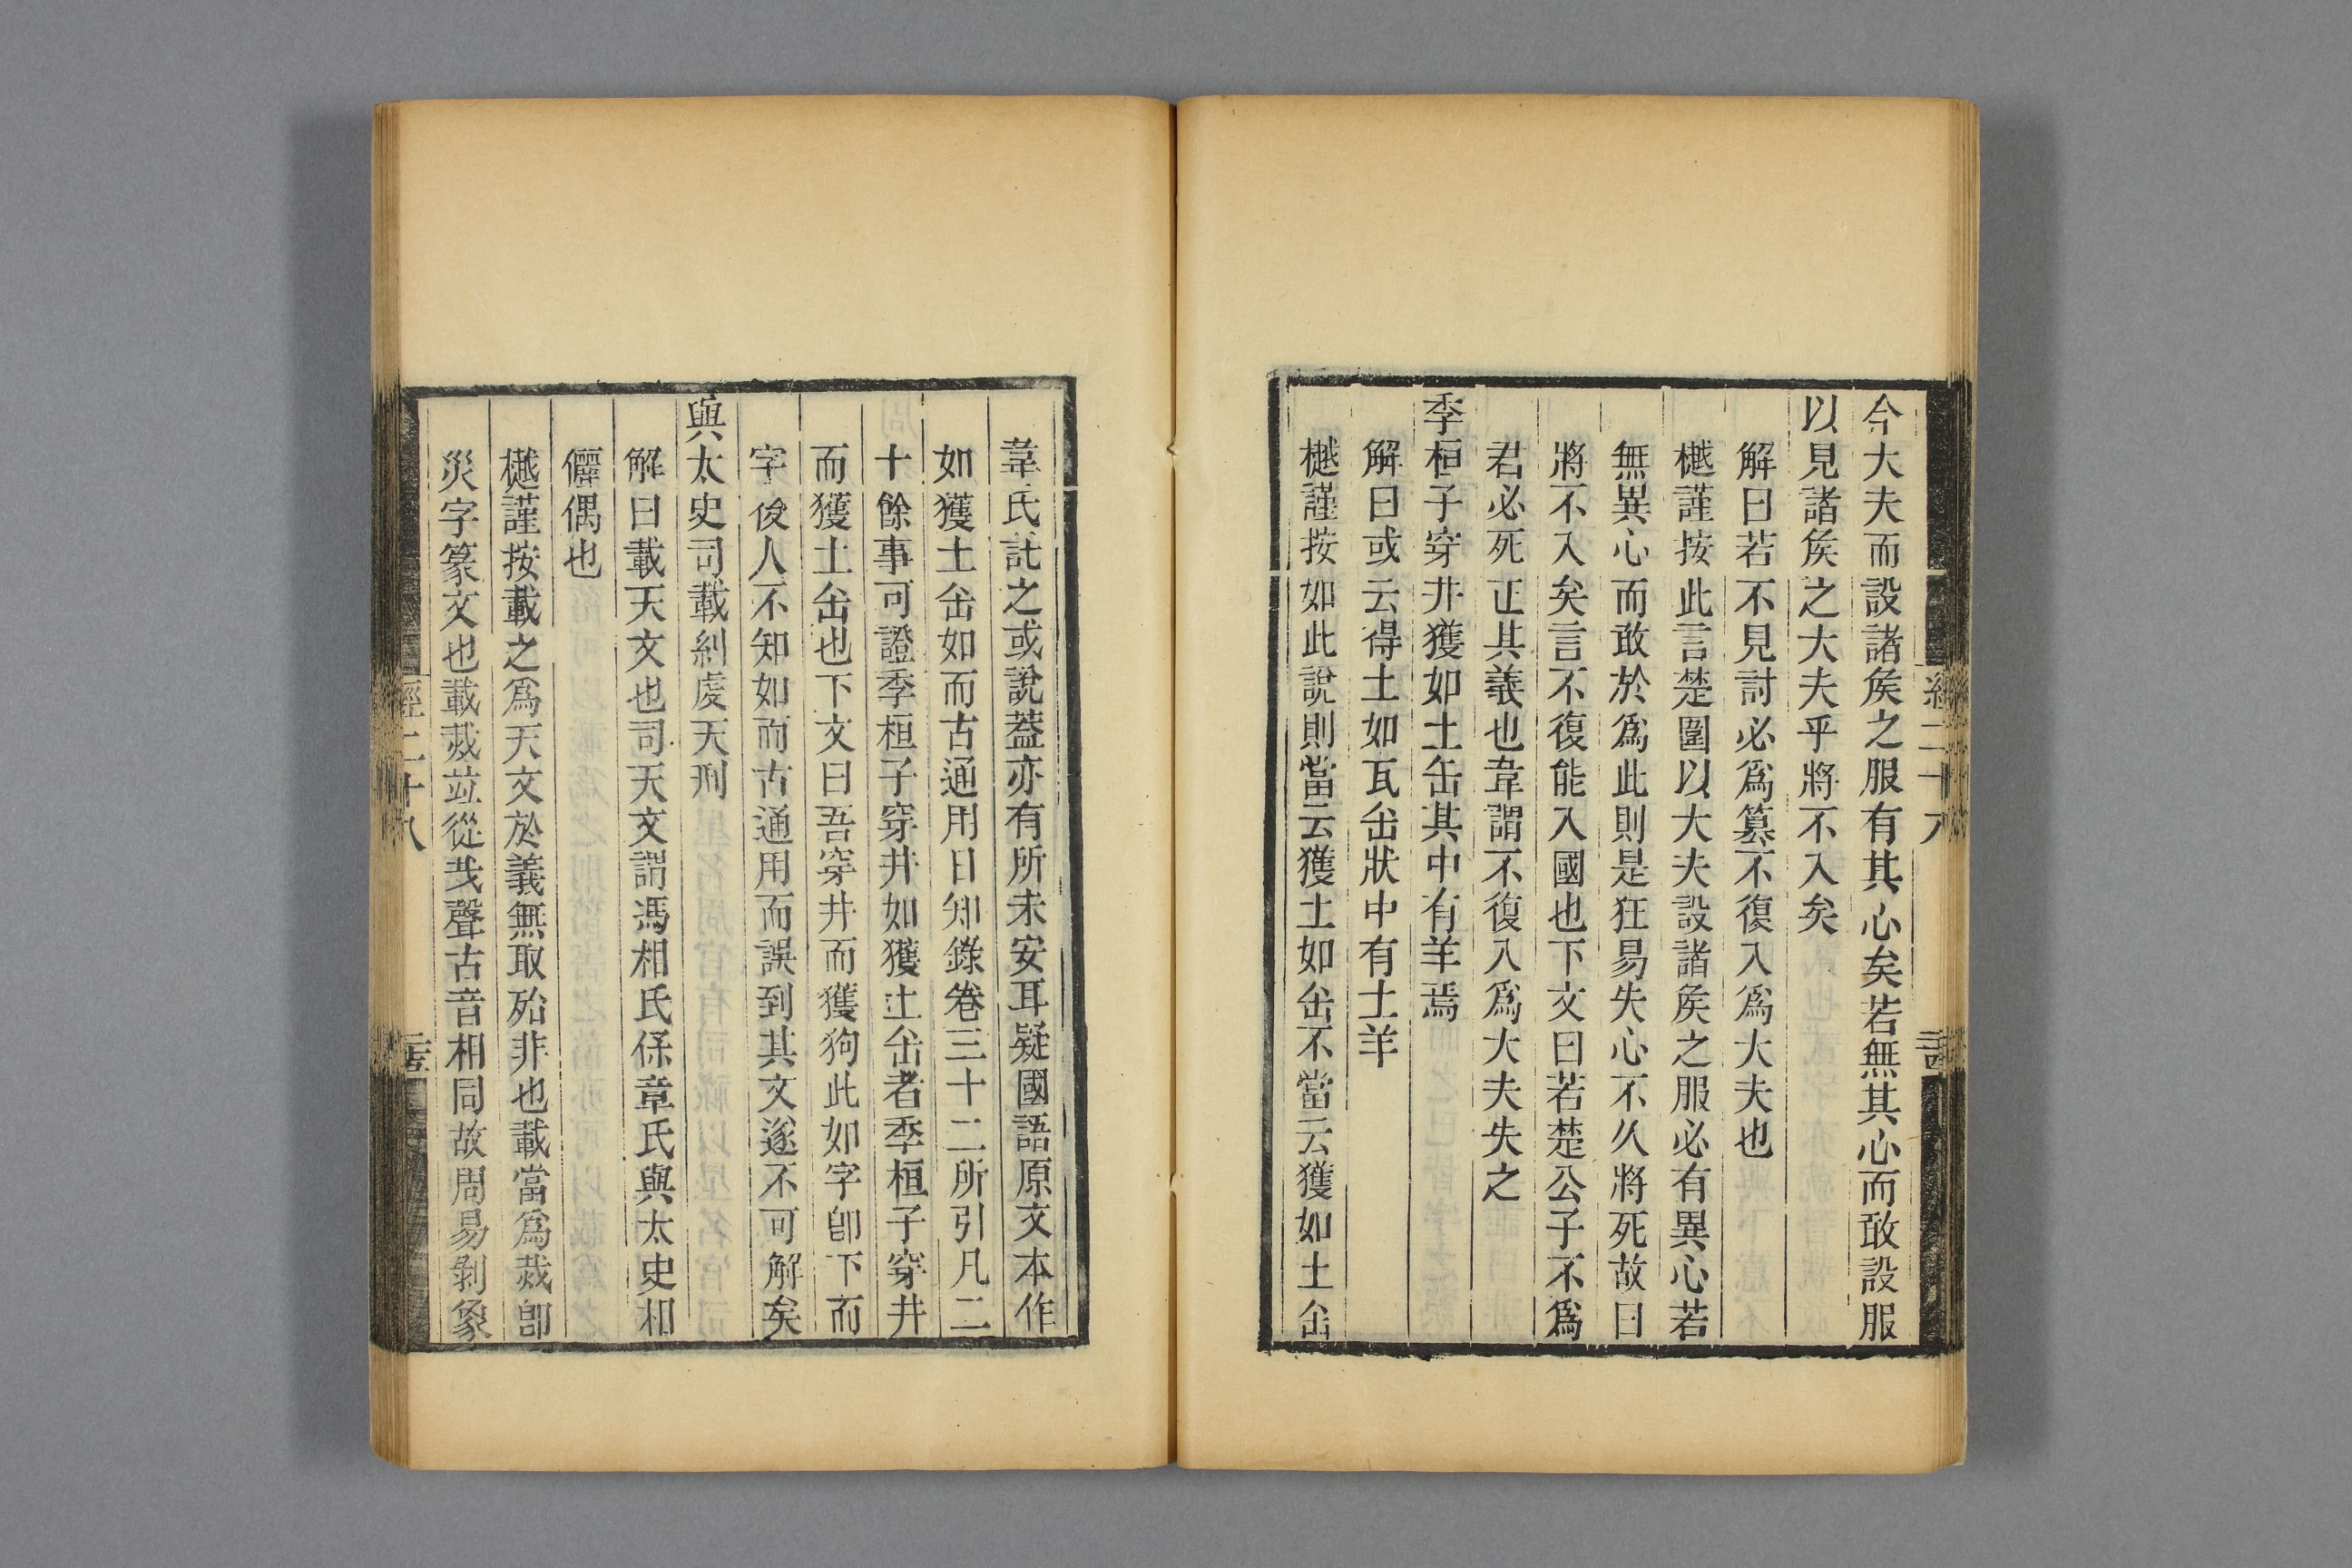 今大夫而設諸矦之服有其心矣若無其心而敢設服
以見諸矦之大夫乎將不入矣
解曰若不見討必爲篡不復入爲大夫也
樾謹按此言楚圍以大夫設諸矦之服必有異心若
無異心而敢於爲此則是狂易失心不久將死故曰
將不入矣言不復能入國也下文曰若楚公子不爲
君必死正其義也韋謂不復入爲大夫失之
季桓子穿井獲如土缶其中有羊焉
解曰或云得土如瓦缶狀中有土羊
樾謹按如此說則當云獲土如缶不當云獲如土缶
韋氏託之或說葢亦有所未安耳疑國語原文本作
如獲土缶如而古通用日知錄卷三十二所引凡二
十餘事可證季桓子穿井如獲土缶者季桓子穿井
而獲土缶也下文曰吾穿井而獲狗此如字卽下而
字後人不知如而古通用而誤到其文遂不可解矣
與太史司載糾虔天刑
解曰載天文也司天文謂馮相氏保章氏與太史相
儷偶也
樾謹按載之爲天文於義無取殆非也載當爲烖卽
災字篆文也載烖竝從𢦏聲古音相同故周易剝象
經二十八